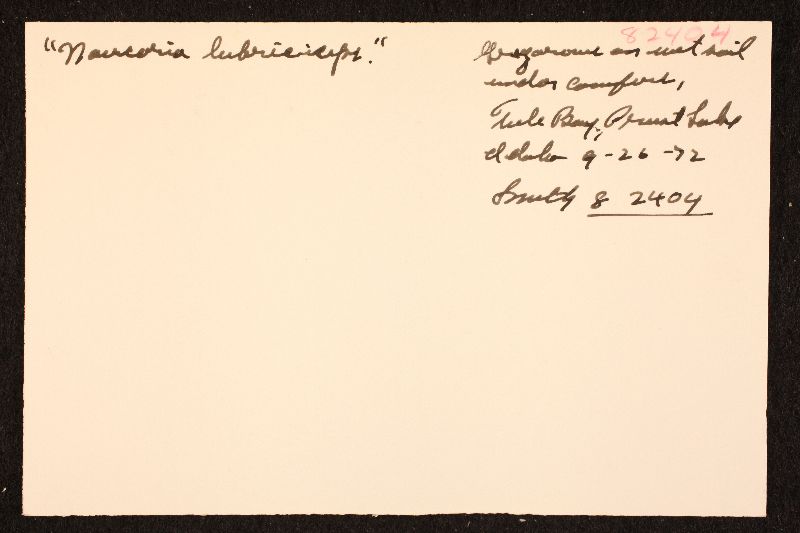 82404
"Naucoria lubriciceps."
Gregarious on wet soil
under conifers,
Tule Bay, Priest Lake
Idaho 9-26-72
Smith 82404